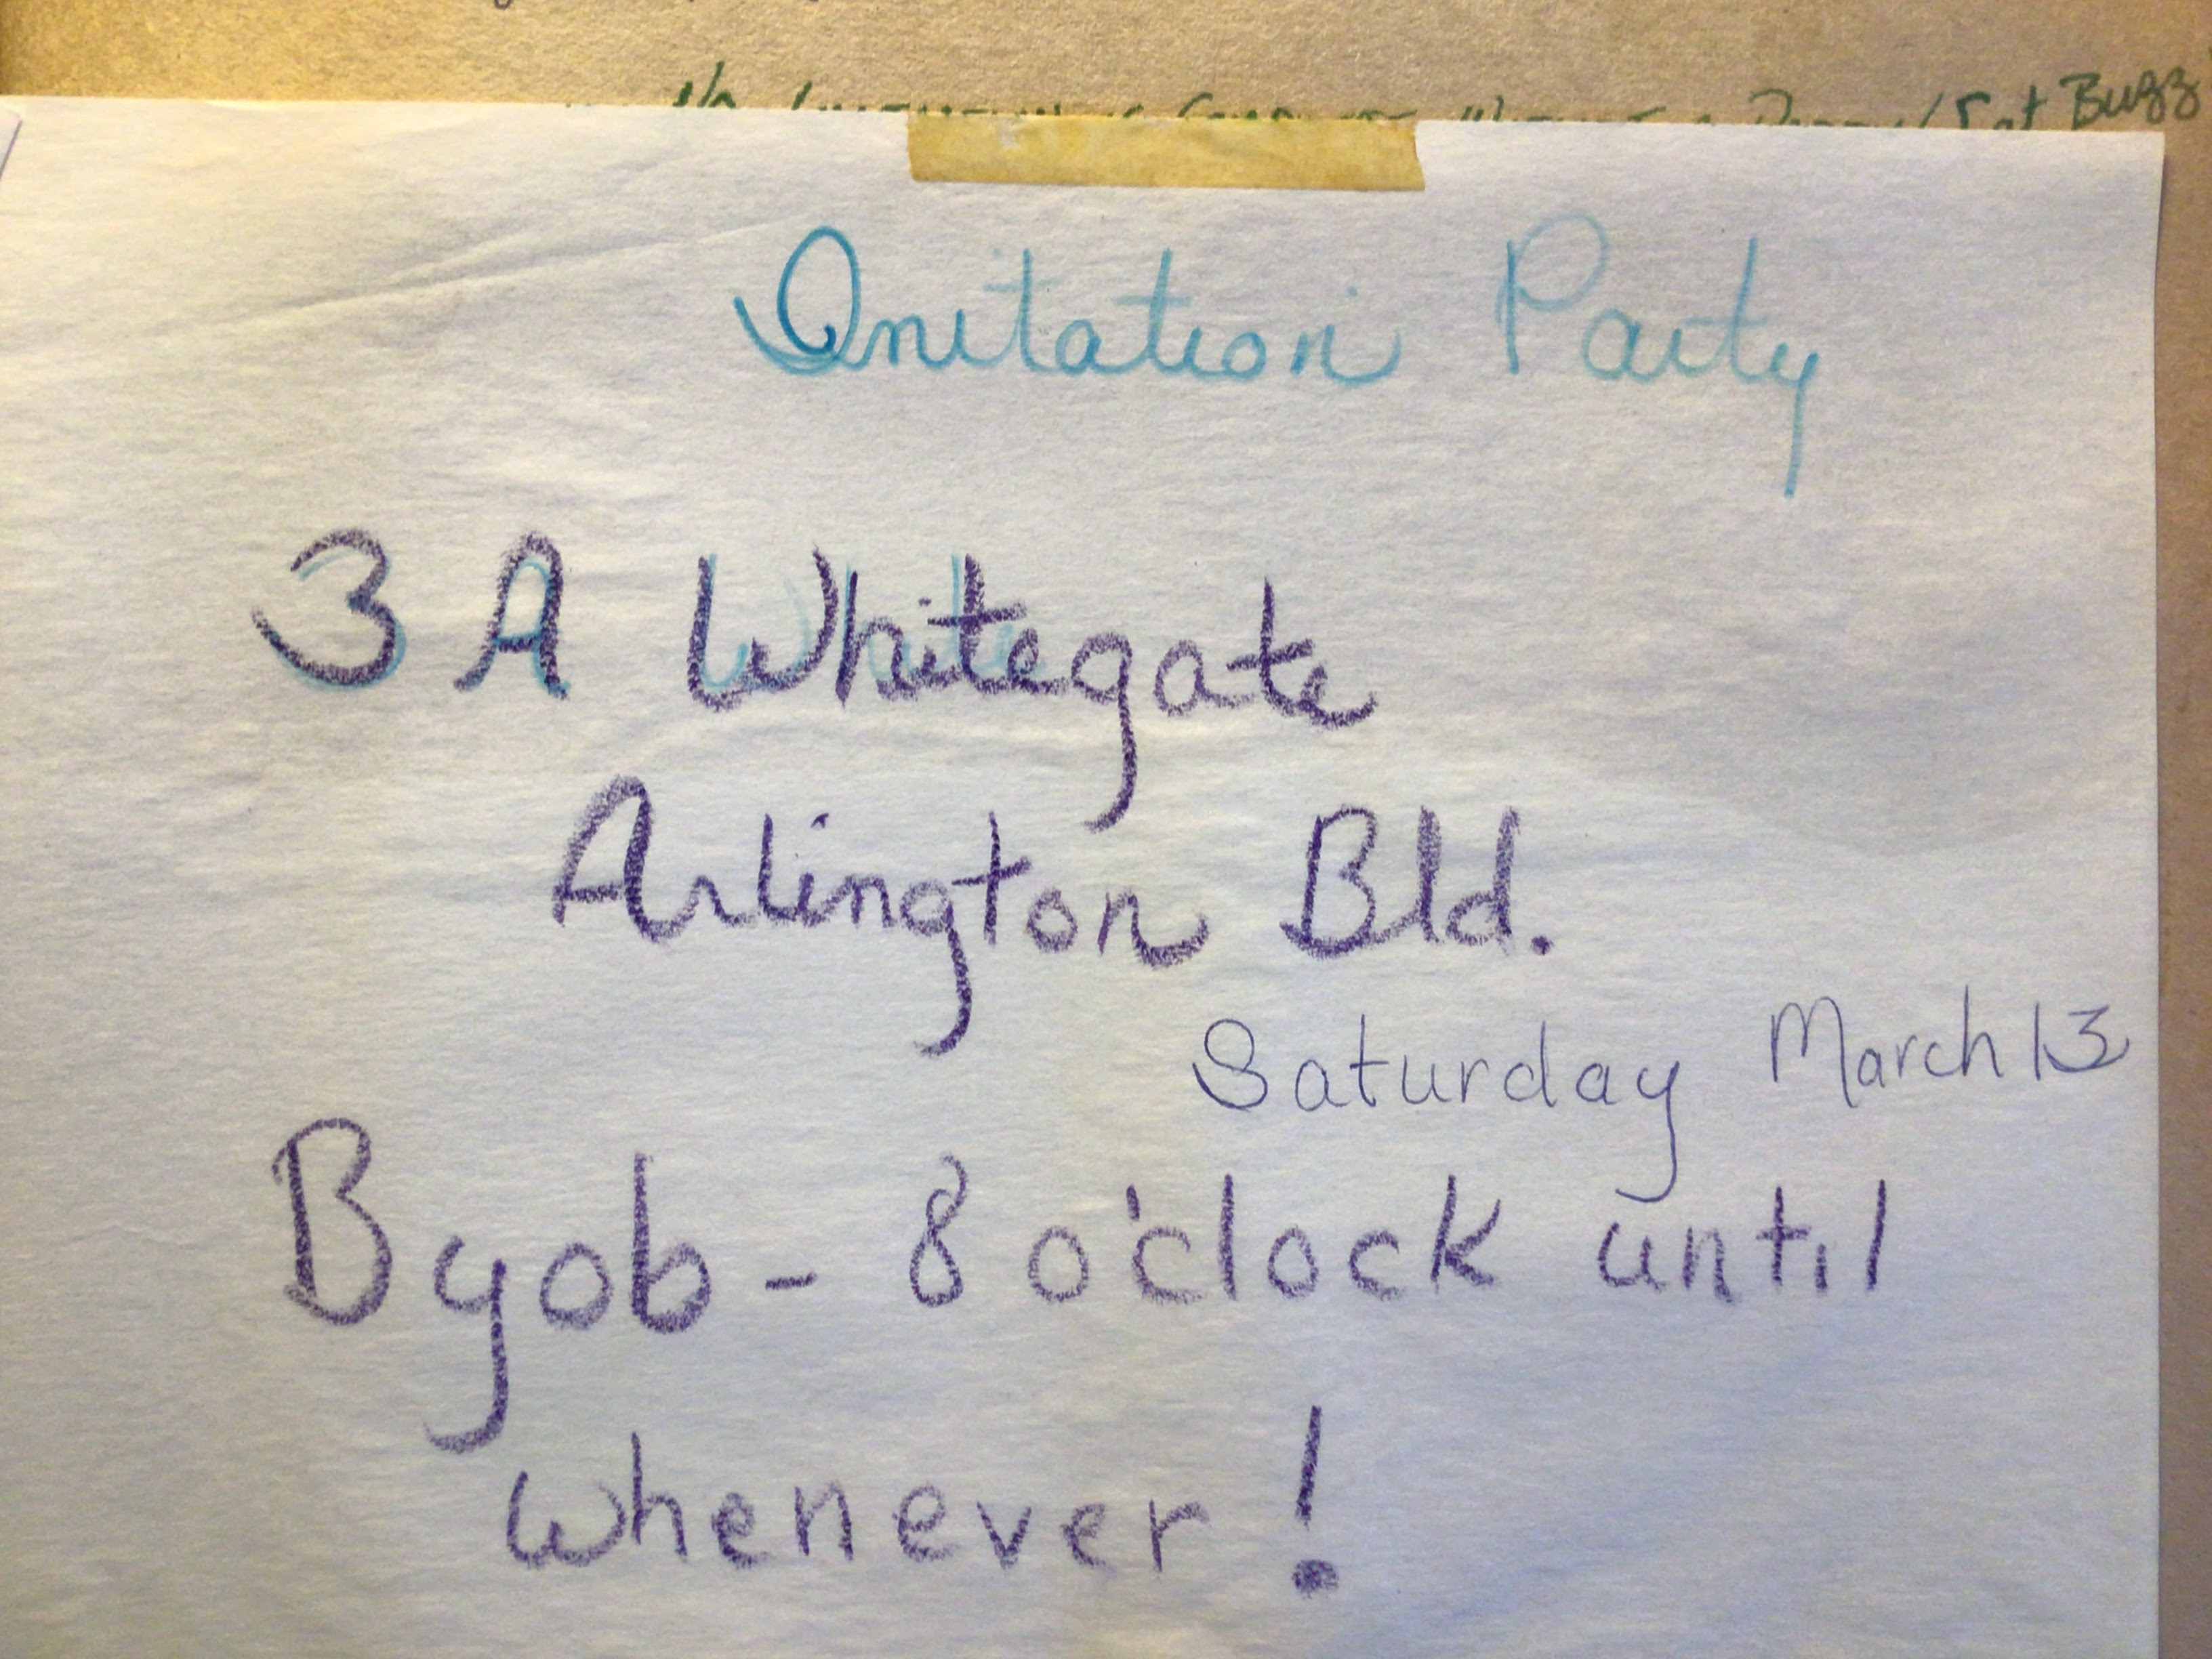 Buzz
Initation Party
3 A Whitegate
Arlington Bld.
Saturday March 13
Byob - 8 o'clock until
whenever!